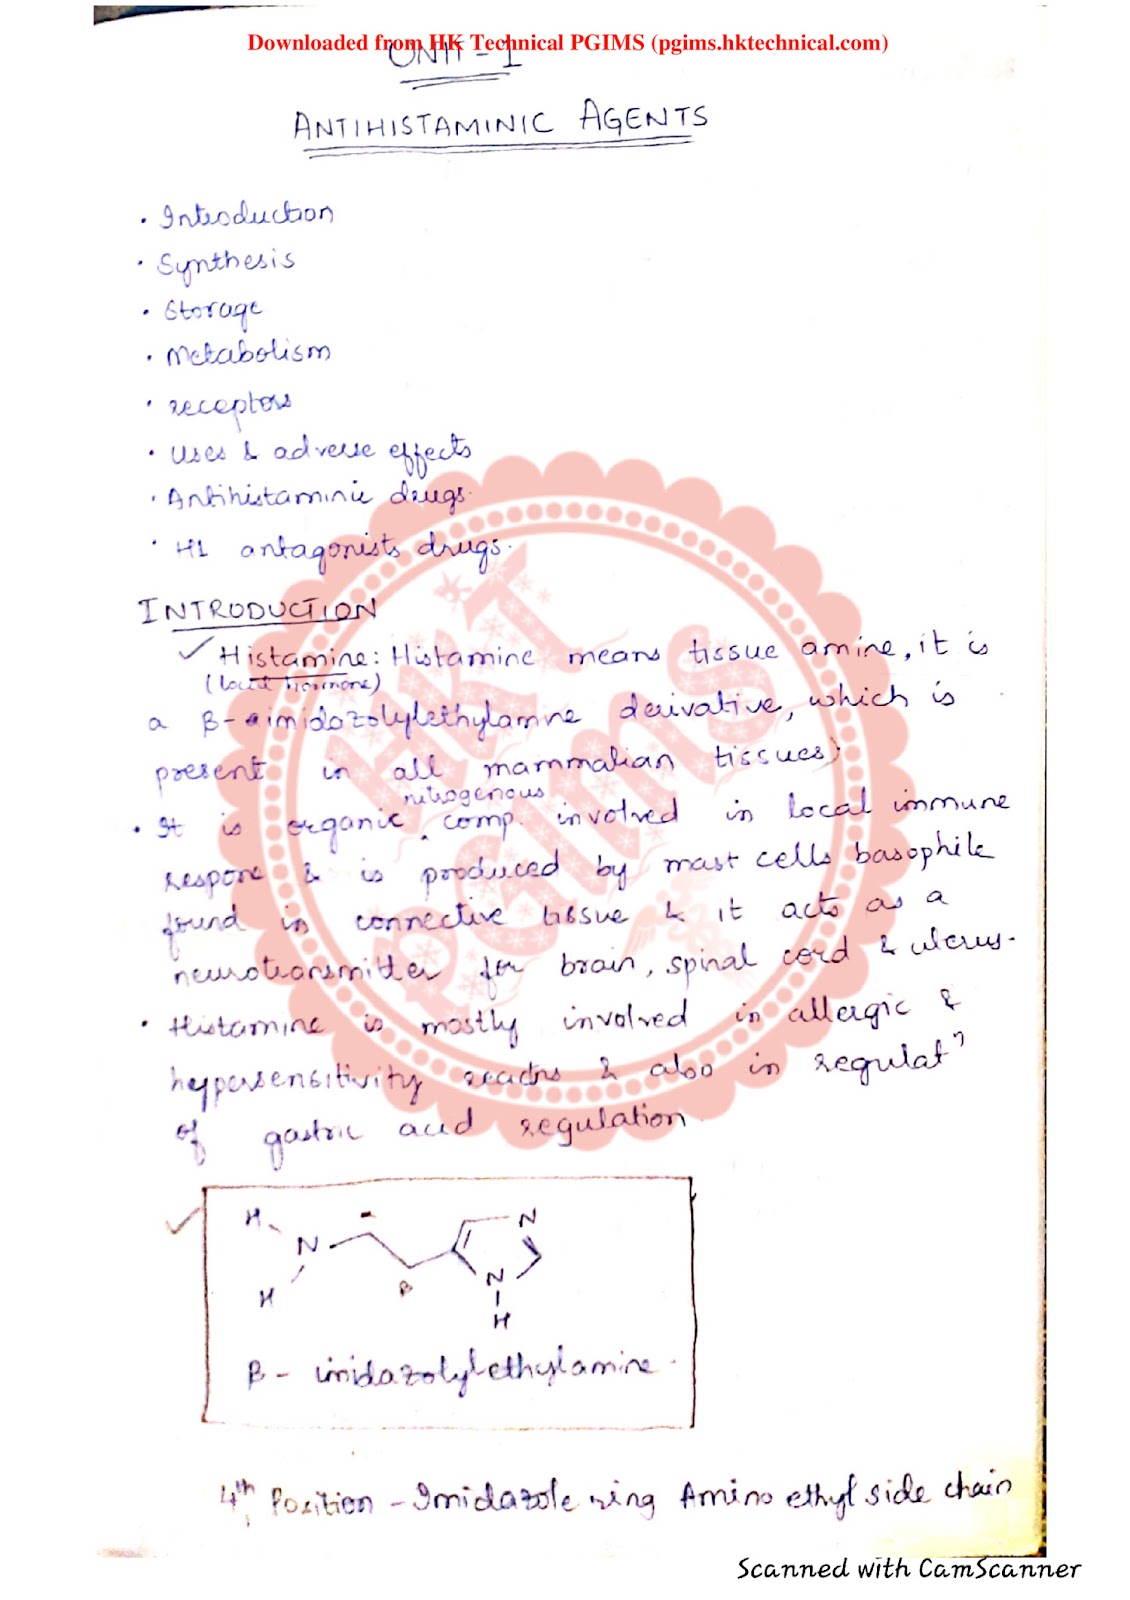 Downloaded from HK Technical PGIMS (pgims.hktechnical.com)
UNIT - 1
ANTIHISTAMINIC AGENTS
• Introduction
• Synthesis
• Storage
• Metabolism
• receptors
• Uses & adverse effects
• Antihistaminic drugs.
• H1 antagonists drugs.
INTRODUCTION
✓ Histamine: Histamine means tissue amine, it is
(local hormone)
a β- imidazolylethylamine derivative, which is
present in all mammalian tissues)
nitrogenous
• It is organic ‸ comp. involved in local immune
respone & is produced by mast cells basophile
found in connective tissue & it acts as a
neurotransmitter for brain, spinal cord & uterus.
• Histamine is mostly involved in allergic &
heypersensitivity reactns & also in regulatⁿ
of gastric acid regulation.
HKT
PGIMS
✓
H
N
H
N
β
N
H
β - imidazolylethylamine.
4th Position - Imidazole ring Amino ethyl side chain
Scanned with CamScanner